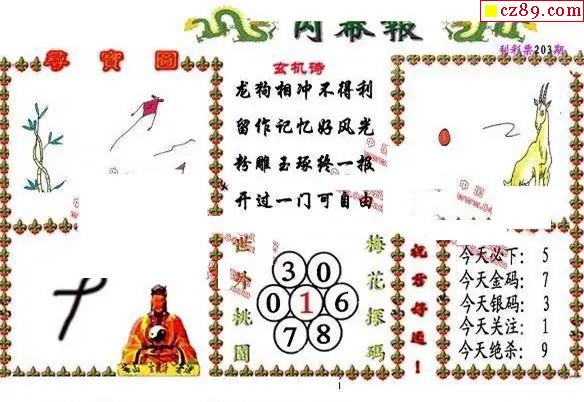 cz89.com
内幕报
寻宝图
玄机诗
利利票203期
龙狗相冲不得利
留作记忆好风光
粉雕玉琢终一报
开过一门可自由
世外桃园
3 0
0 1 6
7 8
梅花探码
祝君好运！
今天必下： 5
今天金码： 7
今天银码： 3
今天关注： 1
今天绝杀： 9